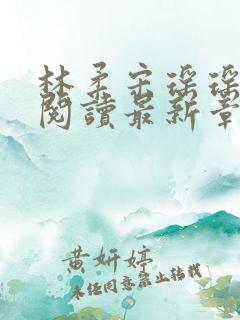 林柔宋瑤瑤
閱讀最新章
黄妍婷
未经同意禁止转载